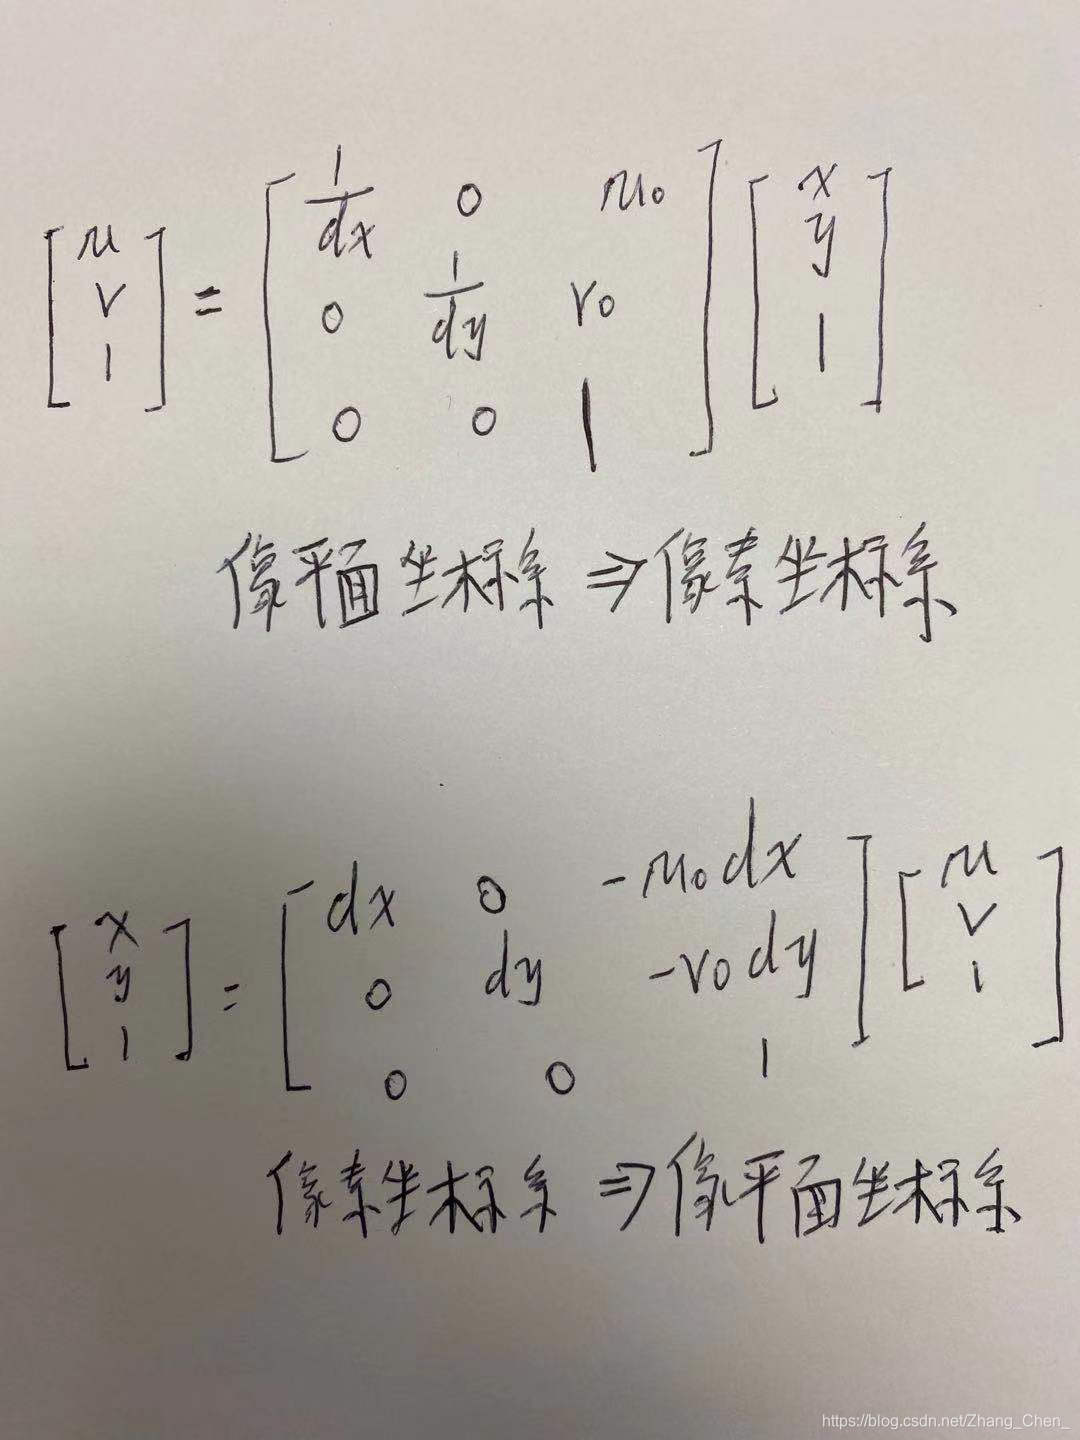 [u v 1] = [1/dx 0 u0; 0 1/dy v0; 0 0 1] [x y 1]
像平面坐标系 ⇒ 像素坐标系
[x y 1] = [dx 0 -u0dx; 0 dy -v0dy; 0 0 1] [u v 1]
像素坐标系 ⇒ 像平面坐标系
https://blog.csdn.net/Zhang_Chen_